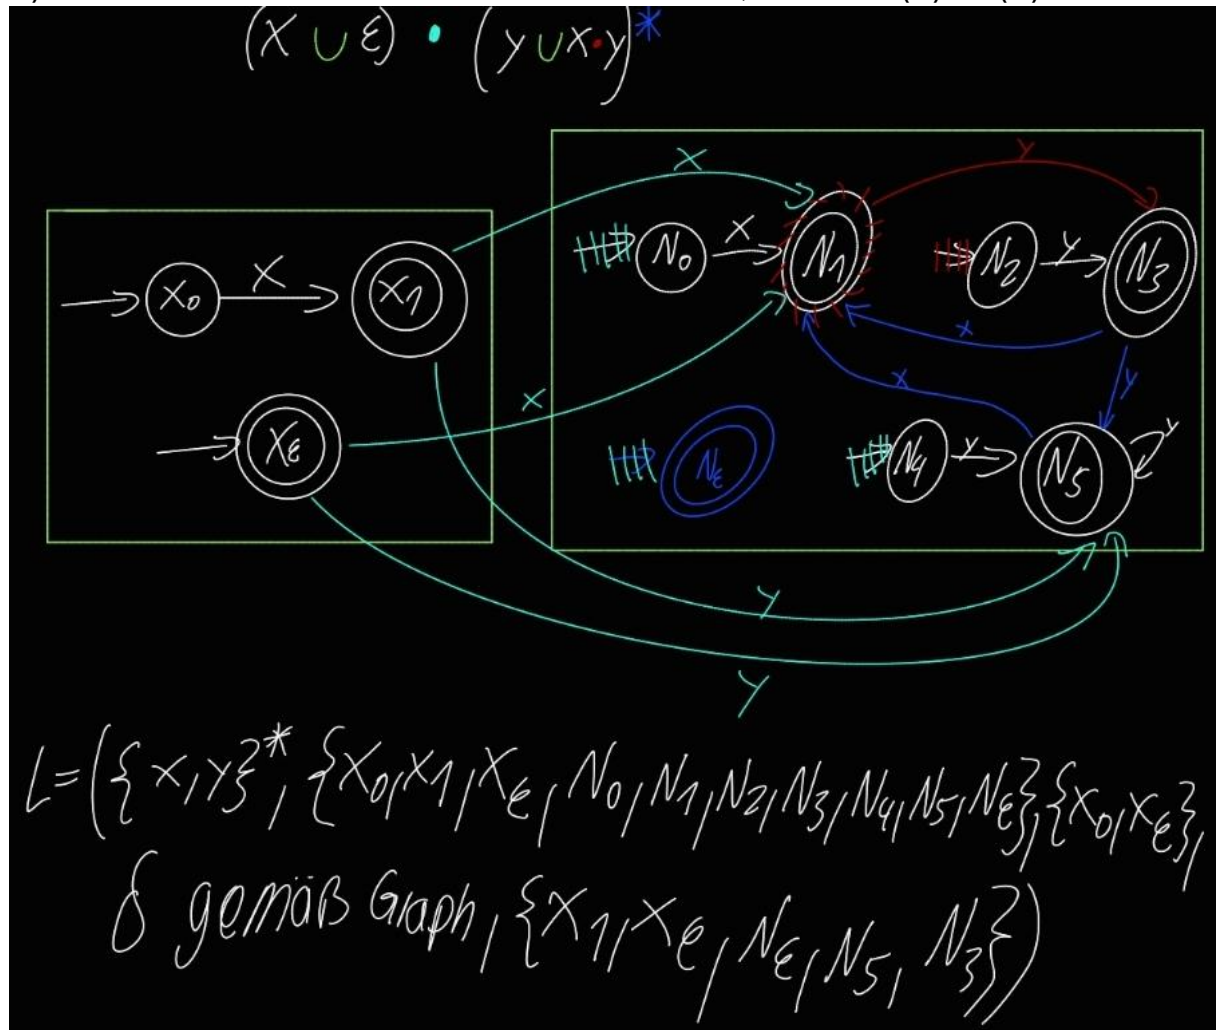 (X ∪ ε) · (y ∪ X·y)*
X
y
X₀
X
X₁
N₀
X
N₁
N₂
y
N₃
X
X
X
y
Xε
X
Nε
N₄
y
N₅
y
y
y
L=({x,y}*,{X₀,X1,Xε,N₀,N1,N₂,N₃,N₄,N5,Nε},{X₀,Xε},
δ gemäß Graph,{X1,Xε,Nε,N5,N₃})